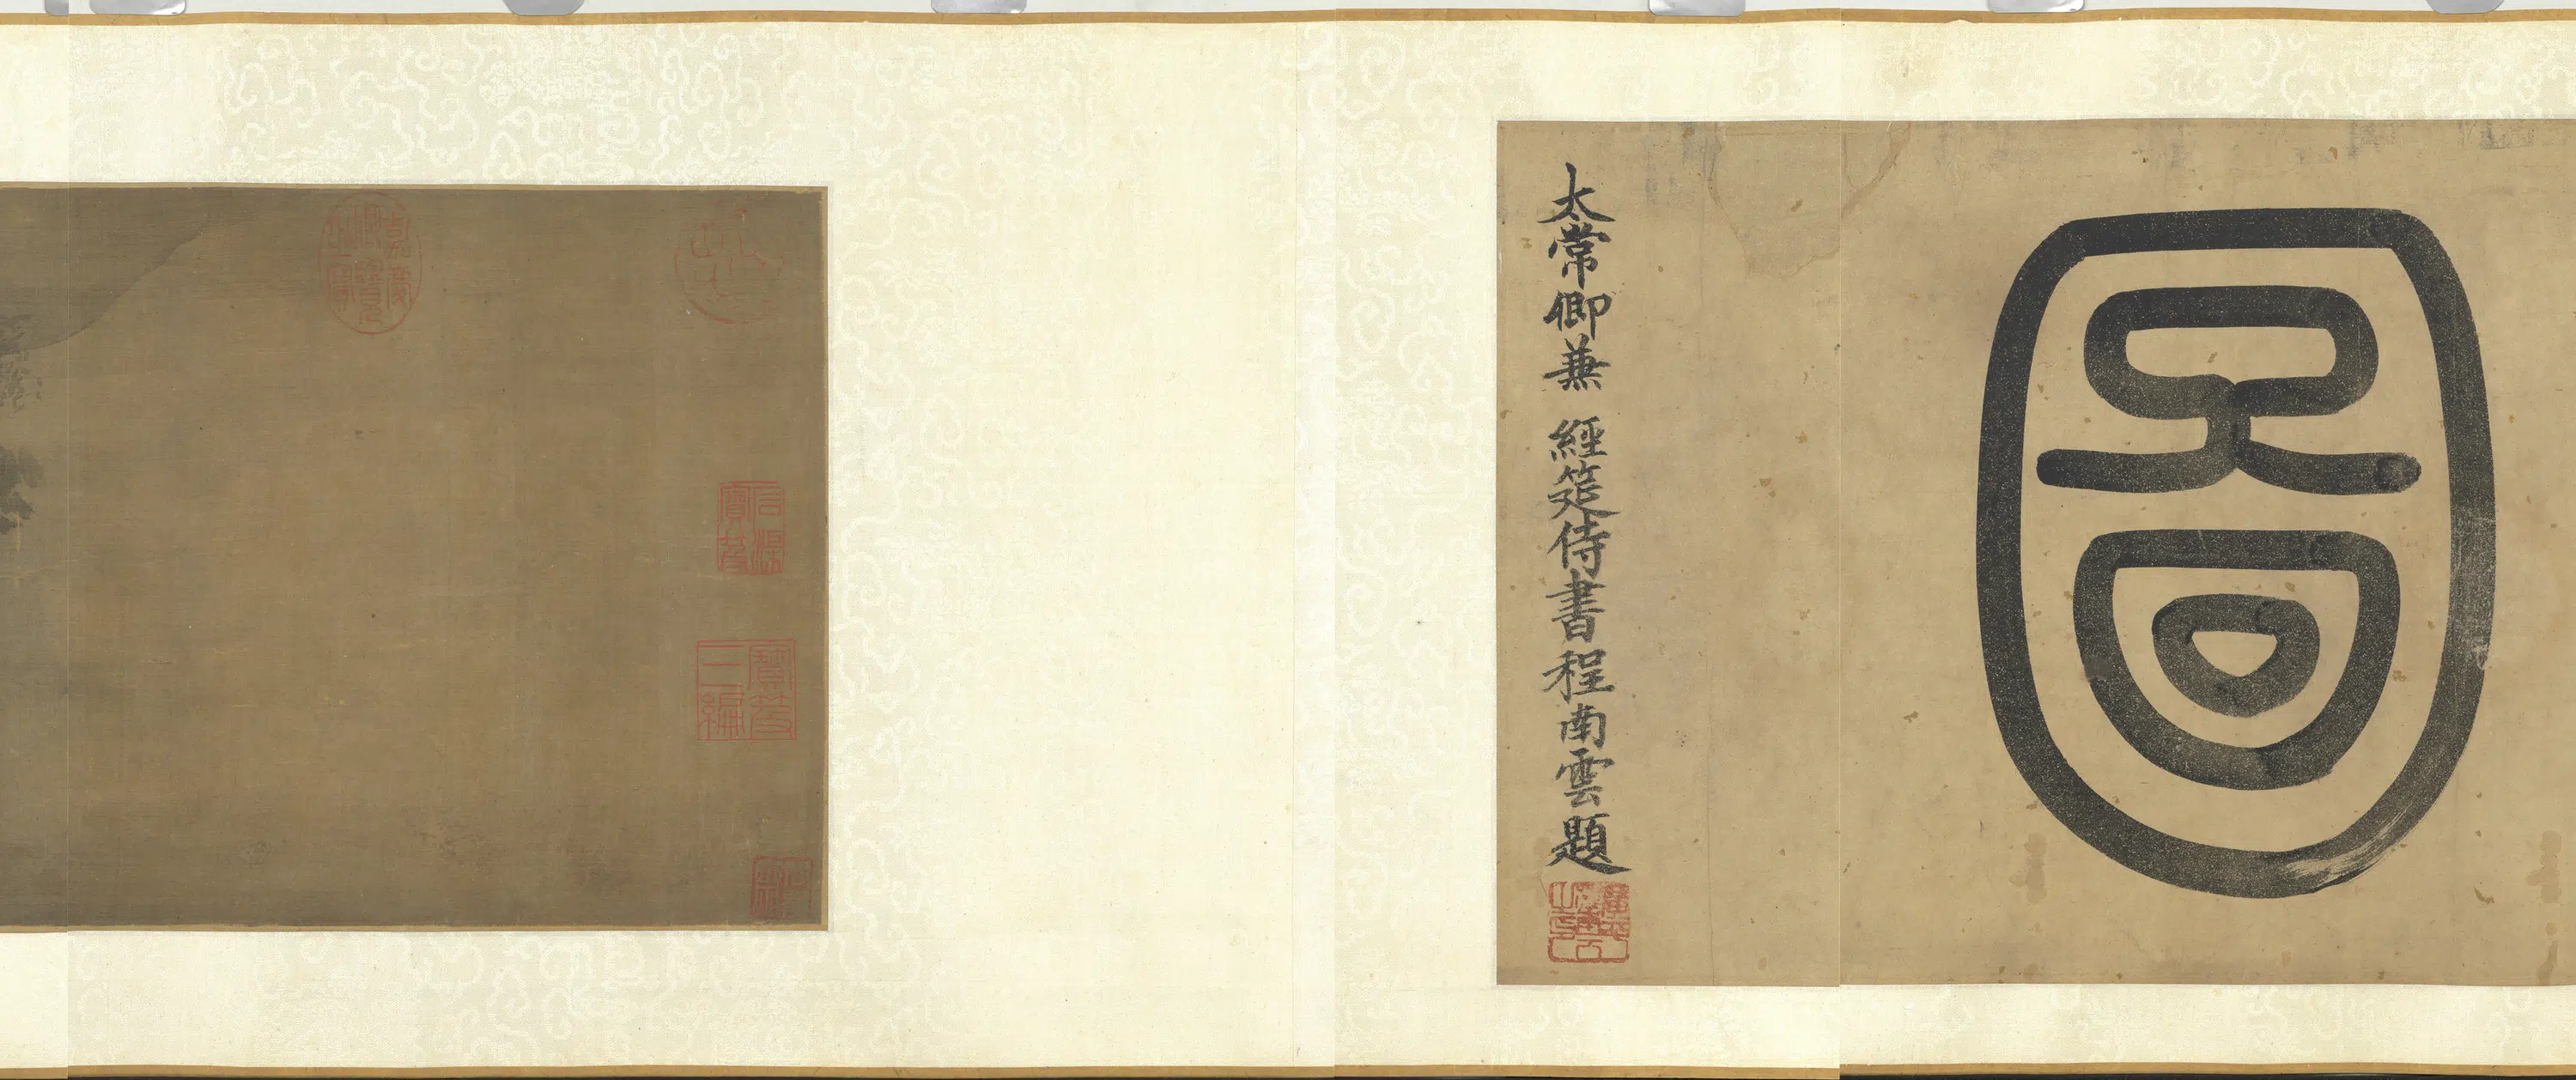 圖
太常卿兼 經筵侍書程南雲題
石渠寶笈
寶笈三編
嘉慶御覽之寶